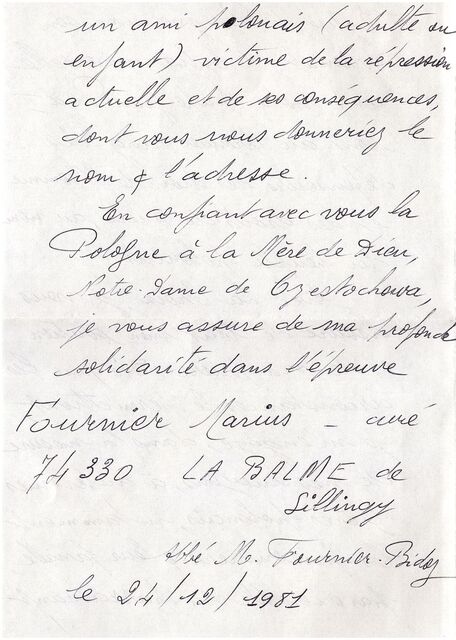 un ami polonais (adulte ou
enfant) victime de la répression
actuelle et de ses conséquences,
dont vous nous donneriez le
nom & l'adresse.
En confiant avec vous la
Pologne à la Mère de Dieu,
Notre-Dame de Czestochowa,
je vous assure de ma profonde
solidarité dans l'épreuve
Fournier Marius - curé
74 330 LA BALME de
Sillingy
Abbé M. Fournier-Bidoz
le 24/12/1981